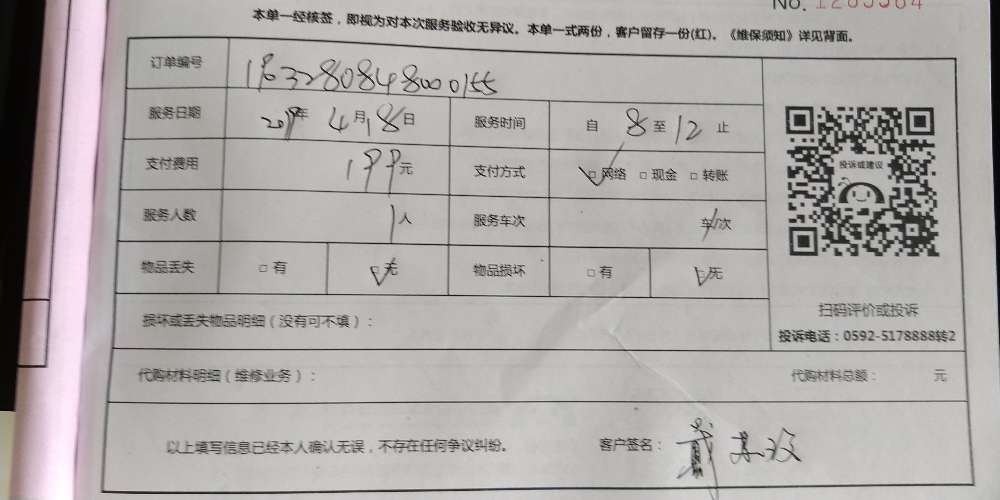 No. 1283564
本单一经核签，即视为对本次服务验收无异议。本单一式两份，客户留存一份(红)。《维保须知》详见背面。
订单编号 1863280848000155
服务日期 2019年 4月18日 服务时间 自 8 至 12 止
支付费用 199元 支付方式 □网络 □现金 □转账
服务人数 1人 服务车次 车/次
物品丢失 □有 □无 物品损坏 □有 □无
投诉或建议
扫码评价或投诉
投诉电话：0592-5178888转2
损坏或丢失物品明细（没有可不填）：
代购材料明细（维修业务）： 代购材料总额： 元
以上填写信息已经本人确认无误，不存在任何争议纠纷。 客户签名：戴